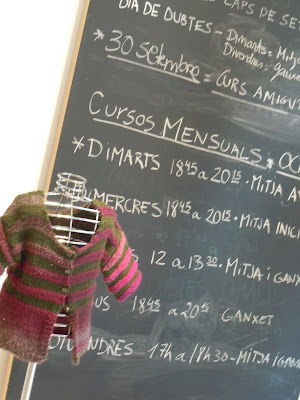 DIA DE DUBTES - Dimarts = Mitja
CAPS DE SET
Divendres =
* 30 SETEMBRE = CURS AMIGU
CURSOS MENSUALS * OC
* DIMARTS 18 45 a 20 15 - MITJA A
MERCRES 18 45 a 20 15 · MITJA INICI
12 a 13 30 - MITJA i GAN
US 18 45 a 20 15 GANXET
DIVENDRES 17h a 18h30 - MITJA i GANX